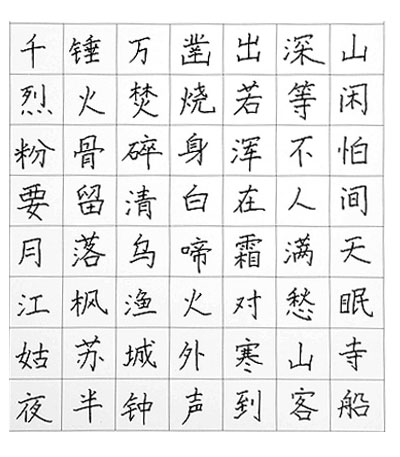 千锤万凿出深山
烈火焚烧若等闲
粉骨碎身浑不怕
要留清白在人间
月落乌啼霜满天
江枫渔火对愁眠
姑苏城外寒山寺
夜半钟声到客船